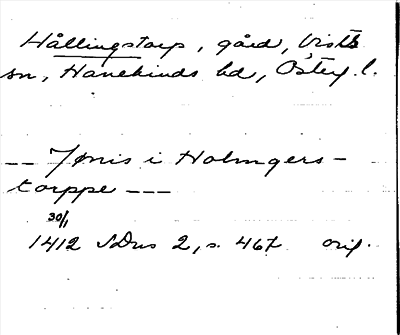 Hållingstorp, gård, Vists
sn, Hanekinds hd, Österg. l.
-- Jønis i Holmgers-
torppe ---
30/1
1412 SDns 2, s. 467 orig.